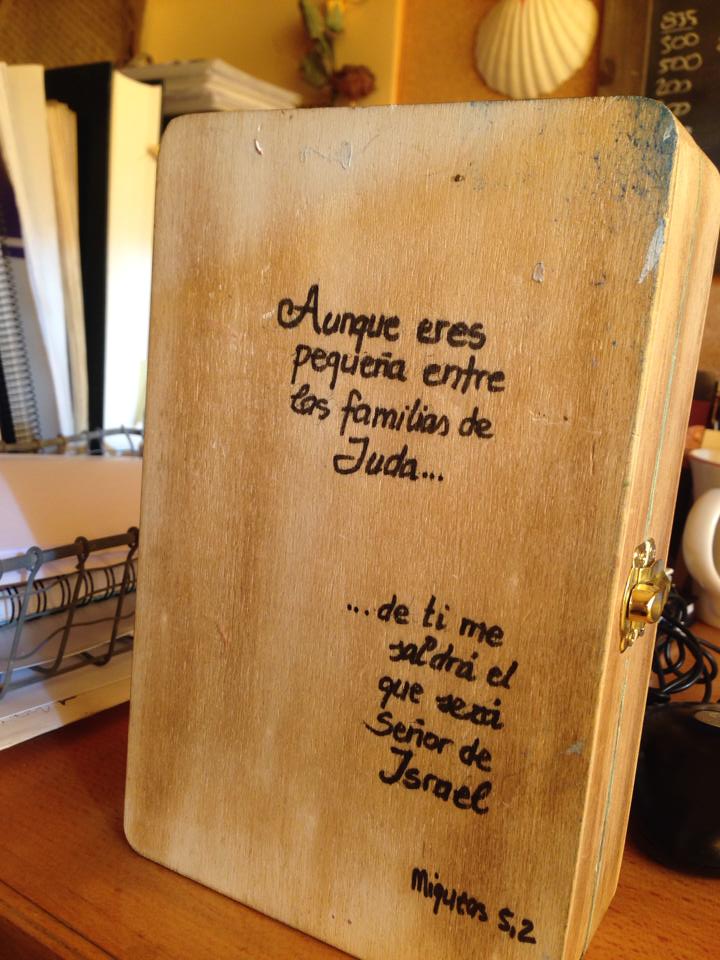 Aunque eres
pequeña entre
las familias de
Juda...
...de ti me
saldrá el
que será
Señor de
Israel
Miqueas 5,2
835
500
500